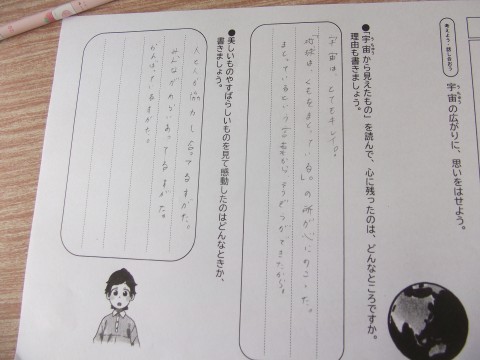 考えよう・話し合おう
宇宙の広がりに、思いをはせよう。
うちゅう
●「宇宙から見えたもの」を読んで、心に残ったのは、どんなところですか。
うちゅう
理由も書きましょう。
「宇宙は、とてもキレイ。
まとっているという
●美しいものやすばらしいものを見て感動したのはどんなときか、
書きましょう。
人と人が協力し合ってるすがた。
みんながわらいあってるすがた。
がんばっているすがた。